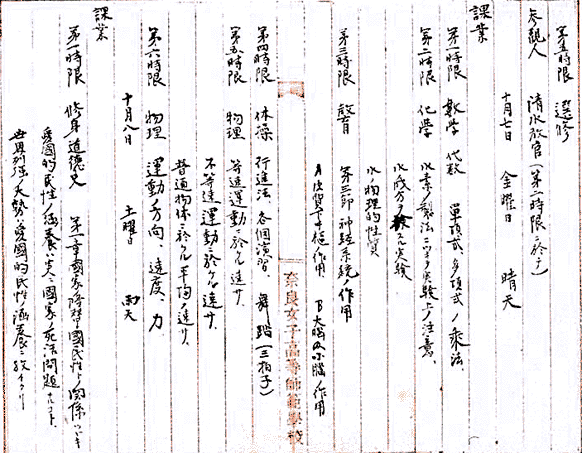 第五時限 選修
参観人 清水教官(第二時限ニ於テ)
十月七日 金曜日 晴天
課業
第一時限 数学 代数 單項式、多項式ノ乗法、
第二時限 化学 水素ノ製法ニツキ実験上ノ注意、
水成分ノ実験
水ノ物理的性質
第三時限 教育 第三節 神経系統ノ作用
作用 B 大脳及小脳ノ作用
奈良女子高等師範學校
第四時限 体操 行進法、各個演習、舞踏(三拍子)
第五時限 物理 等速運動ニ於ケル速サ
不等速運動ニ於ケル速サ
普通物体ニ於ケル平均ノ速サ
第六時限 物理 運動ノ方向、速度、力、
十月八日 土曜日 雨天
課業
第一時限 修身 道徳史 第一章 國家ノ隆替ト國民性トノ関係
愛國的民性ノ涵養ハ國家ノ死活問題
世界列強ノ大勢ハ愛國的民性ノ涵養ニ